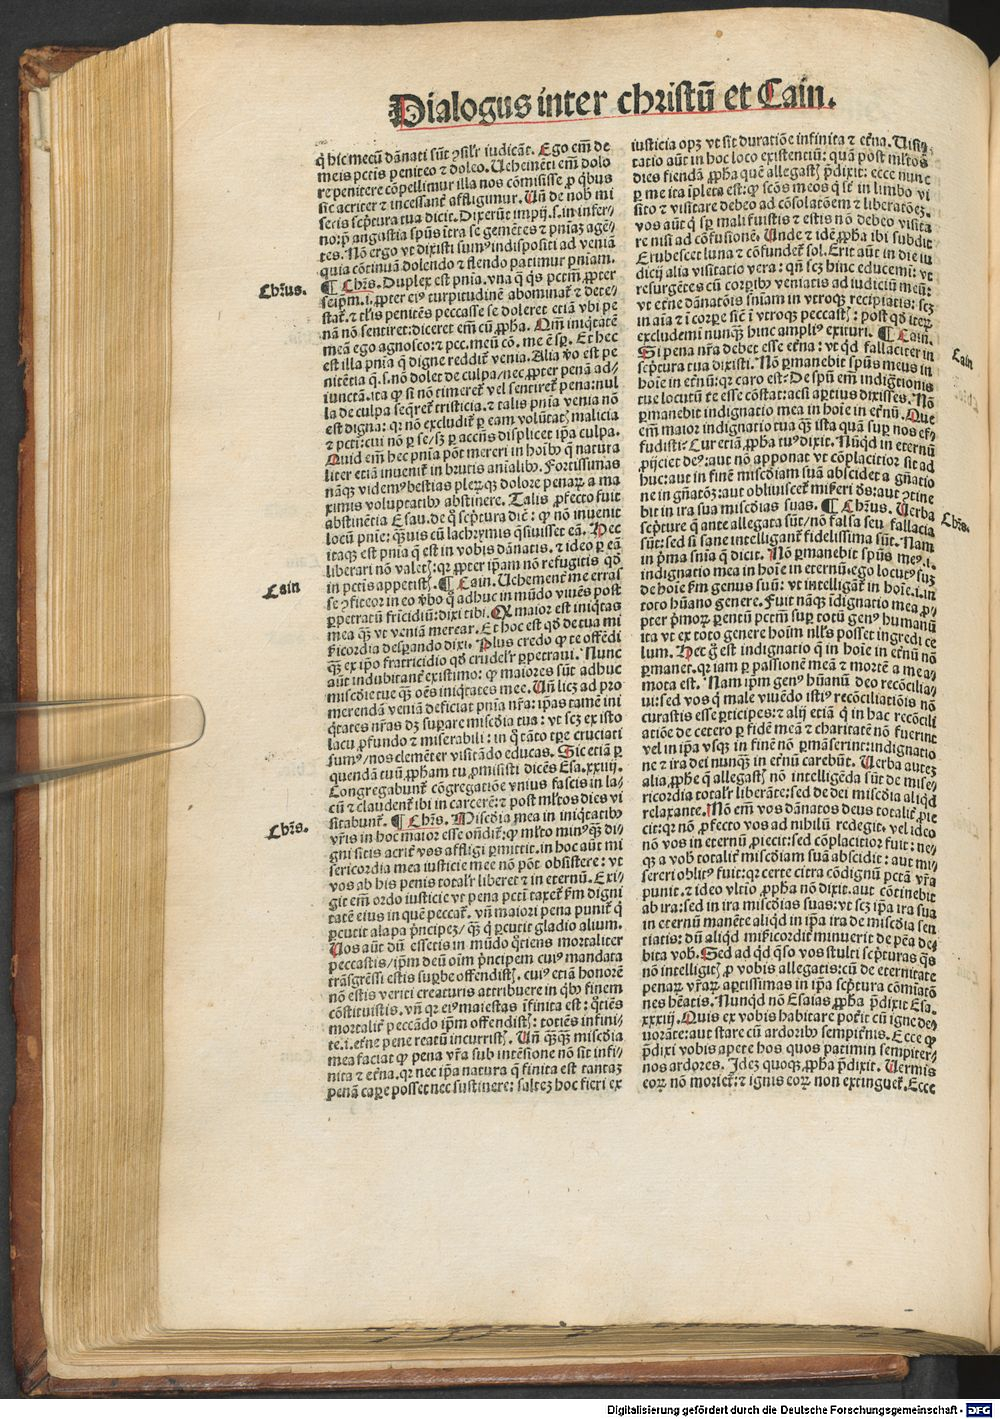 Dialogus inter christū et Cain.
q̇ hic mecū dānati sūt ↄsilr̄ iudicāt. Ego em̄ de
meis pctis peniteo ⁊ doleo. Uehemēti em̄ dolo
re penitere cōpellimur illa nos cōmisisse ꝓ q̇bus
sic acriter ⁊ incessant̄ affligimur. Uñ de nob̄ mi
seris scp̄tura tua dicit. Dixerūt impij .s. in infer⸗
no: p̄ angustia spūs ītra se gemētes ⁊ pniaꝫ agē⸗
tes. Nō ergo vt dixisti sumꝰ indispositi ad veniā
quia cōtinuā dolendo ⁊ flendo patimur pniam.
Chr̄us.
¶ Chr̄s. Duplex est pnia. vna q̄ q̇s pctm̄ ꝓpter
seip̄m .i. ꝓpter eiꝰ turpitudinē abominat̄ ⁊ dete⸗
stat̄. ⁊ tl̄is penitēs peccasse se doleret etiā vbi pe
nā nō sentiret: diceret em̄ cū ꝓpha. Qm̄ iniqtatē
meā ego agnosco: ⁊ pcc. meū cō. me ē sꝑ. Et hec
est illa pnia q̄ digne reddit̄ venia. Alia v̄o est pe
nitētia q̄ .s. nō dolet de culpa / nec ꝓpter penā ad⸗
iunctā. ita ꝙ si nō timeret̄ vel sentiret̄ pena: nul
la de culpa seq̄ret̄ tristicia. ⁊ talis pnia venia nō
est digna: qr̄ nō excludit̄ ꝑ eam volūtat̄ malicia
⁊ pcti: cui nō ꝑ se / sꝫ ꝑ accn̄s displicet ip̄a culpa.
Quid em̄ hec pnia pōt mereri in hoībꝰ q̄ natura
liter etiā inuenit̄ in brutis aīalibꝰ. Fortissimas
nāqꝫ videmꝰ bestias plerūqꝫ dolore penaꝝ a ma
ximis voluptatibꝰ abstinere. Talis ꝓfecto fuit
abstinētia Esau. de q̇ scp̄tura dic̄: ꝙ nō inuenit
locū pnie: q̄uis cū lachrymis q̄siuisset eā. Hec
itaqꝫ est pnia q̄ est in vobis dānatis. ⁊ ideo ꝑ eā
liberari nō valet̄: qr̄ ꝓpter ip̄am nō refugitis qd̄
Cain
in pctis appetist̄. ¶ Cain. Uehement̄ me erras
se ↄfiteor in eo v̄bo q̄ adhuc in mūdo viuēs post
ꝑpetratū fr̄icidiū: dixi tibi. Qꝫ maior est iniqtas
mea qꝫ vt veniā merear. Et hoc est qd̄ de tua mi
sericordia despando dixi. Plus credo ꝙ te offēdi
qꝫ ex ip̄o fratricidio qd̄ crudelr̄ ꝑpetraui. Nunc
aūt indubitāt̄ existimo: ꝙ maiores sūt adhuc
miscd̄ie tue qꝫ oēs iniqtates mee. Uñ licꝫ ad pro
merendā veniā deficiat pnia nr̄a: ip̄as tamē ini
q̇tates nr̄as dꝫ suꝑare miscd̄ia tua: vt scꝫ ex isto
lacu ꝓfundo ⁊ miserabili: in q̇ tāto tꝑe cruciati
sumꝰ / nos clemēter visitādo educas. Sic etiā ꝑ
quendā tuū ꝓpham tu ꝓmisisti dicēs Esa. xxiiij.
Congregabunt̄ cōgregatiōe vnius fascis in la⸗
cū ⁊ claudent̄ ibi in carcerē: ⁊ post ml̄tos dies vi
Chr̄s.
sitabunt̄. ¶ Chr̄s. Miscd̄ia mea in iniqtatibꝰ
vr̄is in hoc maior esse ond̄it̄: ꝙ ml̄to minꝰ qꝫ di⸗
gni sitis acrit̄ vos affligi ꝑmittit. in hoc aūt mi
sericordia mea iusticie mee nō pōt obsistere: vt
vos ab his penis totalr̄ liberet ⁊ in eternū. Exi⸗
git em̄ ordo iusticie vt pena pcti taxet̄ ẜm digni
tatē eius in quē peccat̄. vñ maiori pena punit̄ q̇
ꝑcutit alapa p̄ncipeꝫ / qꝫ q̇ ꝑcutit gladio alium.
Uos aūt dū essetis in mūdo q̇tiens mortaliter
peccastis / ip̄m deū oīm p̄ncipem cuiꝰ mandata
trāsgressi estis suꝑbe offendist̄. cuiꝰ etiā honorē
nō estis veriti creaturis attribuere in q̇bꝰ finem
cōstituistis. vñ qr̄ eiꝰ maiestas īfinita est: q̇tiēs
mortalit̄ peccādo ip̄m offendist̄: totiēs infini⸗
te .i. et̄ne pene reatū incurrist̄. Uñ qꝫqꝫ miscd̄ia
mea faciat ꝙ pena vr̄a sub intēsione nō sit infi⸗
nita ⁊ et̄na. qr̄ nec ip̄a natura q̄ finita est tantaꝫ
penā caꝑe posset nec sustinere: salteꝫ hoc fieri ex
iusticia opꝫ vt sit duratiōe infinita ⁊ et̄na. Uisi⸗
tatio aūt in hoc loco existentiū: quā post ml̄tos
dies fiendā ꝓpha quē allegast̄ p̄dixit: ecce nunc
ꝑ me ita īpleta est: ꝙ scōs meos q̇ sūt in limbo vi
sito ⁊ visitare debeo ad cōsolatōem ⁊ liberatōeꝫ.
vos aūt q̇ sꝑ mali fuistis ⁊ estis nō debeo visita
re nisi ad cōfusionē. Unde ⁊ idē ꝓpha ibi subdit
Erubescet luna ⁊ cōfundet̄ sol. Erit aūt in die iu
dicij alia visitatio vera: qn̄ scꝫ hinc educemi: vt
resurgētes cū corꝑibꝰ veniatis ad iudiciū meū:
vt et̄ne dānatōis sn̄iam in vtroqꝫ recipiatis: scꝫ
in aīa ⁊ ī corꝑe sic̄ ī vtroqꝫ peccast̄: post qd̄ iteꝝ
excludemi nunqꝫ hinc ampliꝰ exituri. ¶ Cain.
Cain
Si pena nr̄a debet esse et̄na: vt qd̄ fallaciter in
scp̄tura tua dixisti. Nō ꝑmanebit spūs meus in
hoīe in et̄nū: qr̄ caro est: De spū em̄ indig̃tionis
tue locutū te esse cōstat: acsi aꝑtius dixisses. Nō
ꝑmanebit indignatio mea in hoīe in et̄nū. Que
em̄ maior indignatio tua qꝫ ista quā suꝑ nos ef⸗
fudisti: Cur etiā ꝓpha tuꝰ dixit. Nūqd̄ in eternū
ꝓijciet deꝰ: aut nō apponat vt cōplacitior sit ad
huc: aut in finē miscd̄iam suā abscidet a gñatio
ne in gñatōꝫ: aut obliuiscet̄ miẜeri ds̄: aut ↄtine
Chr̄s.
bit in ira sua miscd̄ias suas. ¶ Chr̄us. Uerba
scp̄ture q̄ ante allegata sūt / nō falsa seu fallacia
sūt: sed si sane intelligant̄ fidelissima sūt. Nam
in p̄ma sn̄ia q̄ dicit. Nō ꝑmanebit spūs meꝰ .i.
indignatio mea in hoīe in eternū. ego locutꝰ suꝫ
de hoīe ẜm genus suū: vt intelligat̄ in hoīe .i. in
toto hūano genere. Fuit nāqꝫ īdignatio mea ꝓ⸗
pter p̄moꝝ parentū pctm̄ suꝑ totū genꝰ humanū
ita vt ex toto genere hoīm nl̄ls posset ingredi ce
lum. Hec g̊ est indignatio q̄ in hoīe in et̄nū nō
ꝑmanet. qr̄ iam ꝑ passionē meā ⁊ mortē a me a⸗
mota est. Nam ip̄m genꝰ hūanū deo recōcilia⸗
ui: sed vos q̇ male viuēdo istiꝰ recōciliatiōis nō
curastis esse ꝑticipes: ⁊ alij etiā q̇ in hac recōcili
atiōe de cetero ꝑ fidē meā ⁊ charitatē nō fuerint
vel in ip̄a vsqꝫ in finē nō ꝑmāserint: indignatio
ne ⁊ ira dei nunqꝫ in et̄nū carebūt. Uerba auteꝫ
alia ꝓphe q̄ allegast̄ nō intelligēda sūt de mise⸗
ricordia totalr̄ liberāte: sed de dei miscd̄ia aliqd̄
relaxante. Nō em̄ vos dānatos deus totalit̄ ꝓie
cit: qr̄ nō ꝓfecto vos ad nihilū redegit. vel ideo
nō vos in eternū ꝓiecit: sed cōplacitior fuit: ne⸗
qꝫ a vob̄ totalit̄ miscd̄iam suā abscidit: aut mi⸗
sereri oblitꝰ fuit: qr̄ certe citra cōdignū pctā vr̄a
punit. ⁊ ideo vltio ꝓpha nō dixit. aut cōtinebit
ab ira: sed in ira miscd̄ias suas: vt scꝫ ip̄a ira sua
in eternū manēte aliqd̄ in ip̄a ira de miscd̄ia sen
tiatis: dū aliqd̄ miẜicordit̄ minuerit de pēa de⸗
bita vob̄. Sed ad qd̄ q̄so vos stulti scp̄turas q̄s
nō intelligit̄ ꝓ vobis allegatis: cū de eternitate
penaꝝ vr̄aꝝ aꝑtissimas in ip̄a scp̄tura cōmīatō
nes he̅atis. Nunqd̄ nō Esaias ꝓpha p̄dixit Esa.
xxxiij. Quis ex vobis habitare pot̄it cū igne de⸗
uorāte: aut stare cū ardoribꝰ sempit̄nis. Ecce ꝙ
p̄dixi vobis aꝑte hos quos patimini sempiter⸗
nos ardores. Ideꝫ quoqꝫ ꝓpha p̄dixit. Uermis
eoꝝ nō moriet̄: ⁊ ignis eoꝝ non extinguet̄. Ecce
Digitalisierung gefördert durch die Deutsche Forschungsgemeinschaft - DFG